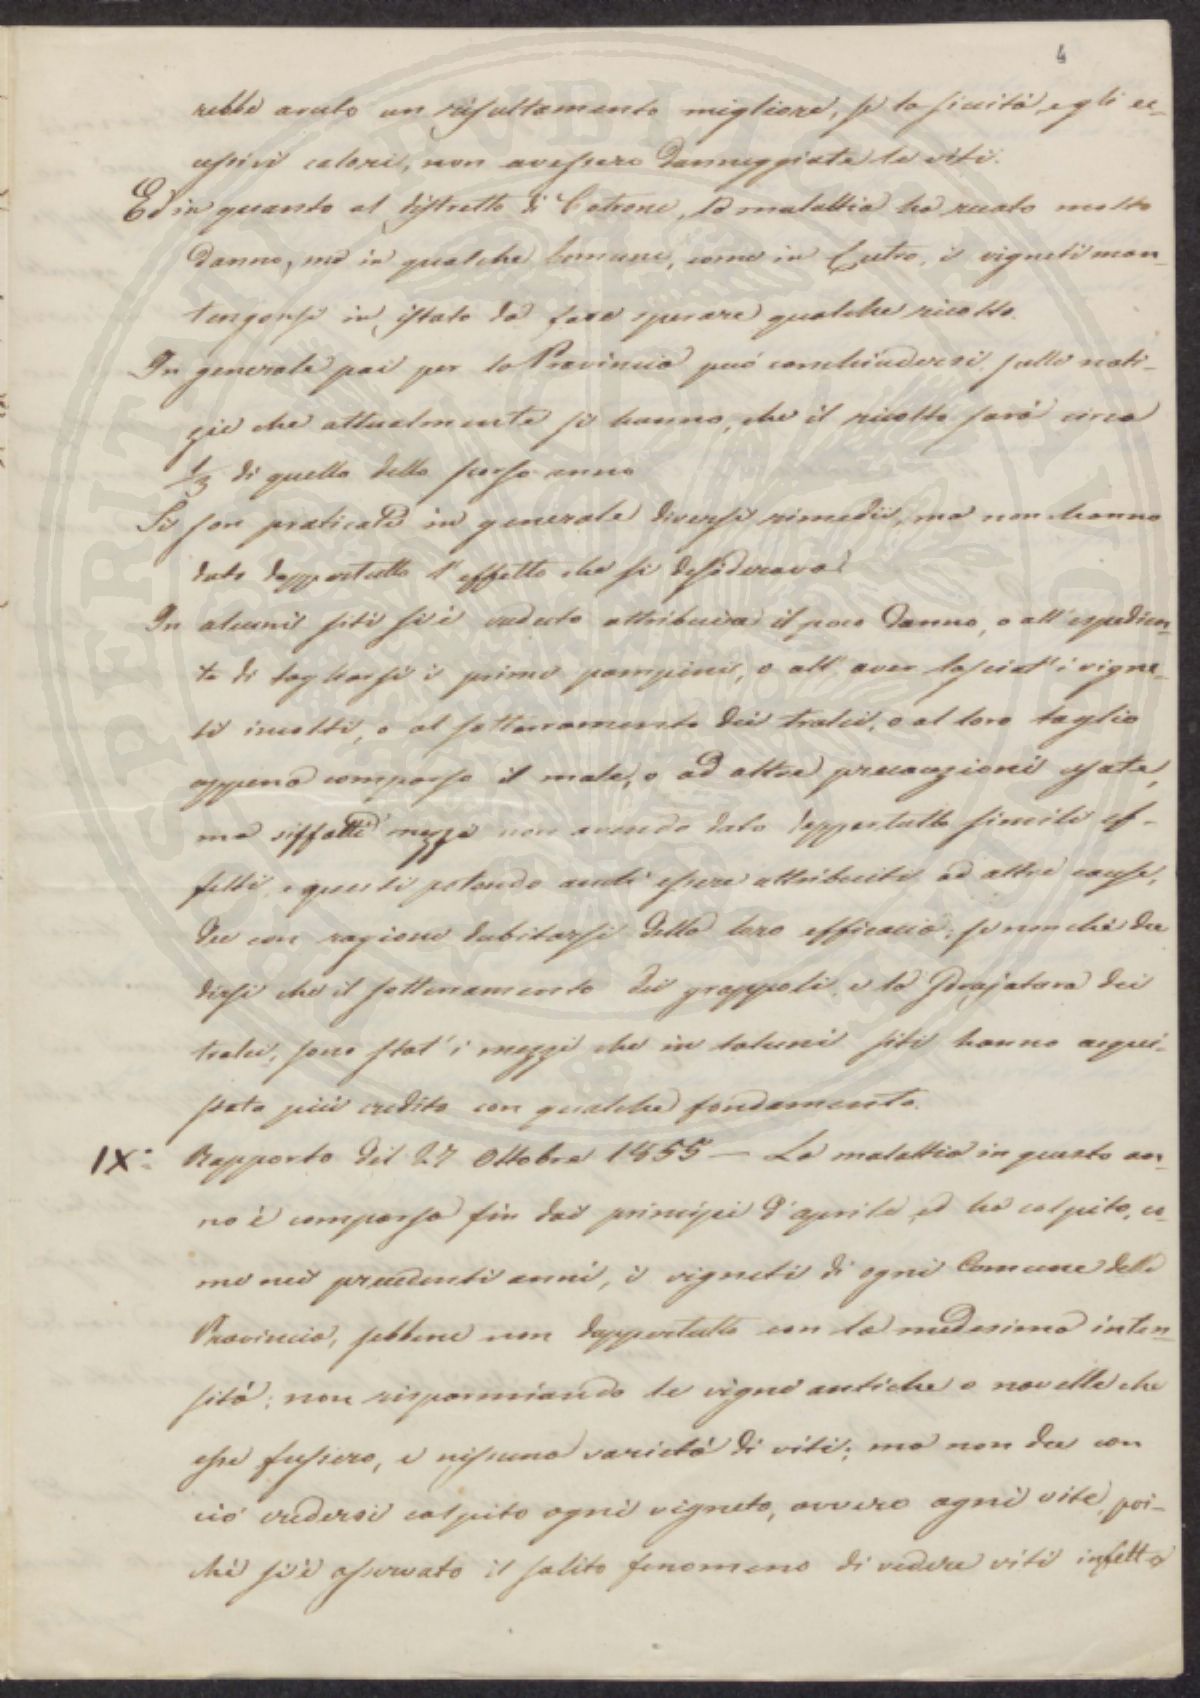 4
rebbe avuto un risultamento migliore, se la siccità, e gli ec-
cessivi calori, non avessero danneggiate le viti.
Ed in quanto al distretto di Cotrone, la malattia ha recato molto
danno, ma in qualche Comune, come in Cutro, i vigneti man-
tengonsi in istato da fare sperare qualche ricolto.
In generale poi per la Provincia può conchiudersi sulle noti-
zie che attualmente si hanno, che il ricolto sarà circa
1/3 di quello dello scorso anno
Si son praticati in generale diversi rimedii, ma non hanno
dato dappertutto l'effetto che si desiderava.
In alcuni siti si è veduto attribuire il poco danno, o all'espedien-
te di togliersi i primi pampini, o all'aver lasciat'i vigne-
ti incolti, o al sotterramento dei tralci, o al loro taglio
appena comparso il male, o ad altre precauzioni usate,
ma siffatti mezzi non avendo dato dappertutto simili ef-
fetti, e questi potendo anche essere attribuiti ad altre cause,
dee con ragione dubitarsi della loro efficacia; se non che dee
dirsi che il sotterramento dei grappoli e la sdrajatura dei
tralci, sono stat'i mezzi che in taluni siti hanno acqui-
stato più credito con qualche fondamento.
IX: Rapporto del 27 Ottobre 1855 — La malattia in questo an-
no è comparsa fin dai principii d'aprile, ed ha colpito, co-
me nei precedenti anni, i vigneti di ogni Comune della
Provincia, sebbene non dappertutto con la medesima inten-
sità; non risparmiando le vigne antiche o novelle che
esse fussero, e nissuna varietà di viti; ma non dee con
ciò credersi colpito ogni vigneto, ovvero ogni vite, poi-
ché si è osservato il solito fenomeno di vedere viti infette